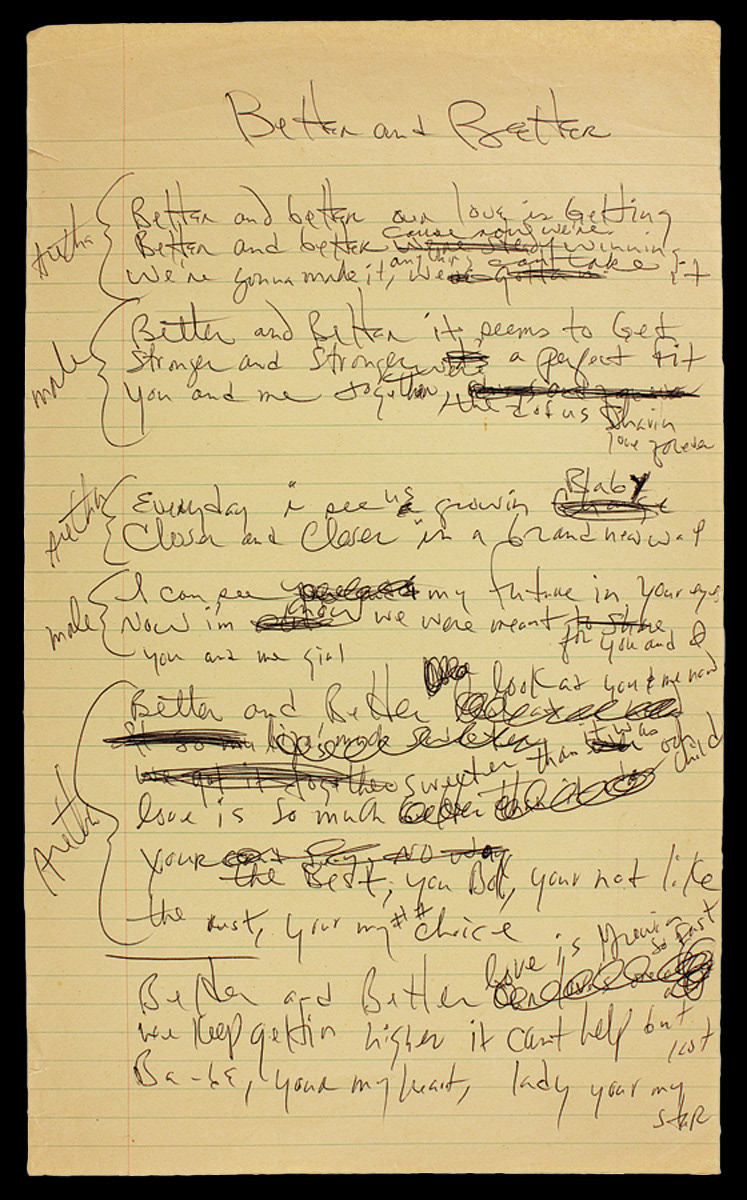 Better and Better
Aretha
Better and better our love is Getting
cause now we're
Better and better we're steady winnin,
anything can't take it
We're gonna made it, we
male
Better and Better it seems to Get
Stronger and Stronger a perfect fit
You and me together,
the 2 of us Sharin
love forever
Aretha
Everyday i see us growin Baby
Closer and Closer in a brand new way
male
I can see my future in your eyes
Now i'm we were meant to share
for you and I
you and me girl
look at you & me now
Aretha
Better and Better
it was
We got it together sweeter than our child
love is so much
your NO way
the Best, you Bet, your not like
the rest, your my ## choice
love is Growin so fast
Better and Better
we keep gettin higher it cant help but
last
Ba-be, your my heart, lady your my
star